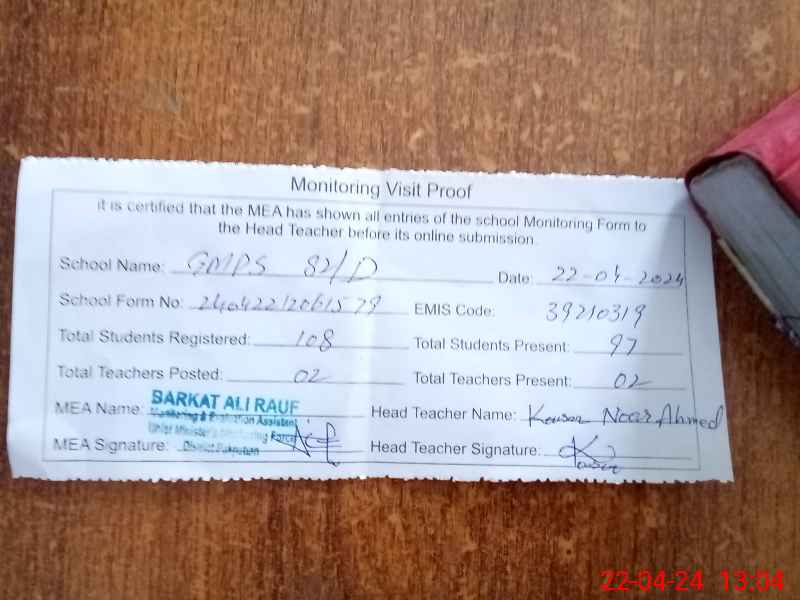 Monitoring Visit Proof
it is certified that the MEA has shown all entries of the school Monitoring Form to
the Head Teacher before its online submission.
School Name: GMPS 82/D Date: 22-04-2024
School Form No: 24042212061579 EMIS Code: 39210319
Total Students Registered: 108 Total Students Present: 97
Total Teachers Posted: 02 Total Teachers Present: 02
MEA Name: SARKAT ALI RAUF Head Teacher Name: Kousar Noor Ahmed
Monitoring & Evaluation Assistant
Chief Minister's Monitoring Force
District Pakpattan
MEA Signature: Head Teacher Signature: Kousar
22-04-24 13:04